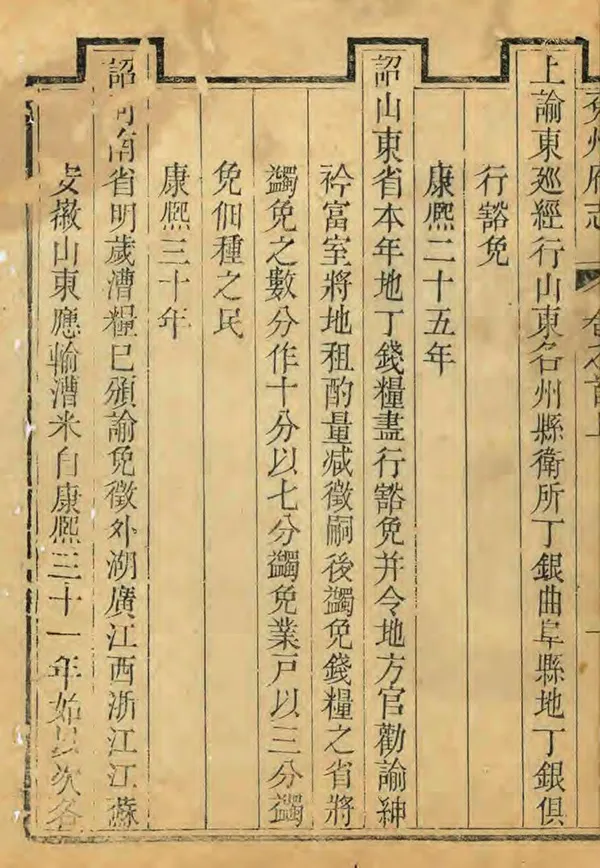 兖州府志 卷之首上
上諭東廵經行山東名州縣衛所丁銀曲阜縣地丁銀俱
行豁免
康熙二十五年
詔山東省本年地丁錢糧盡行豁免并令地方官勸諭紳
衿富室將地租酌量減徵嗣後蠲免錢糧之省將
蠲免之數分作十分以七分蠲免業戸以三分蠲
免佃種之民
康熙三十年
詔河南省明歲漕糧已頒諭免徵外湖廣江西浙江江蘇
安徽山東應輸漕米自康熙三十一年始以次各